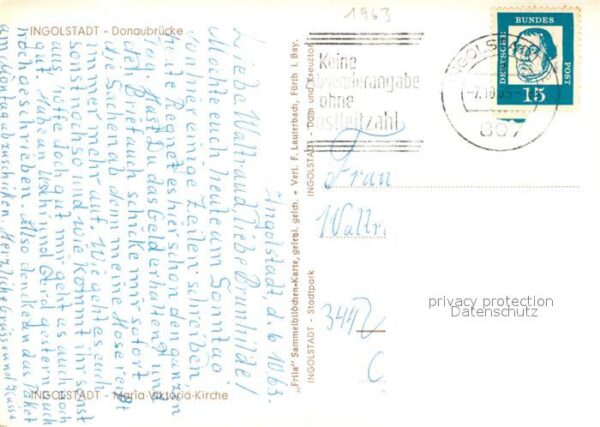 INGOLSTADT - Donaubrücke
1963
DEUTSCHE
BUNDES
POST
15
INGOLSTADT
807
Keine
Absenderangabe
ohne
Postleitzahl
Ingolstadt, d. 6.10.63.
Liebe Waltraud, liebe Brunhilde!
Möchte euch heute am Sonntag
von hier einige Zeilen schreiben
heute Regnet es hier schon den ganzen
Tag. Hast Du das Geld erhalten und
den Brief auch schicke mir sofort
die Sachen ab denn meine Hose reißt
immer mehr auf. Wie geht es euch
sonst noch so und wie kommt ihr sonst
aus hoffe doch gut mir geht es auch noch
gut. Habe an Uschi und Gerd gestern auch
noch geschrieben. Also denke dran das Paket
am Montag abzuschicken. Herzliche Grüße und Küsse
„Frila" Sammelbildchen-Karte, gesetzl. gesch. • Verl. F. Lauterbach, Fürth i. Bay.
INGOLSTADT - Stadtpark
INGOLSTADT - Dom und Kreuztor
Frau
Waltr
344
privacy protection
Datenschutz
INGOLSTADT - Maria-Viktoria-Kirche